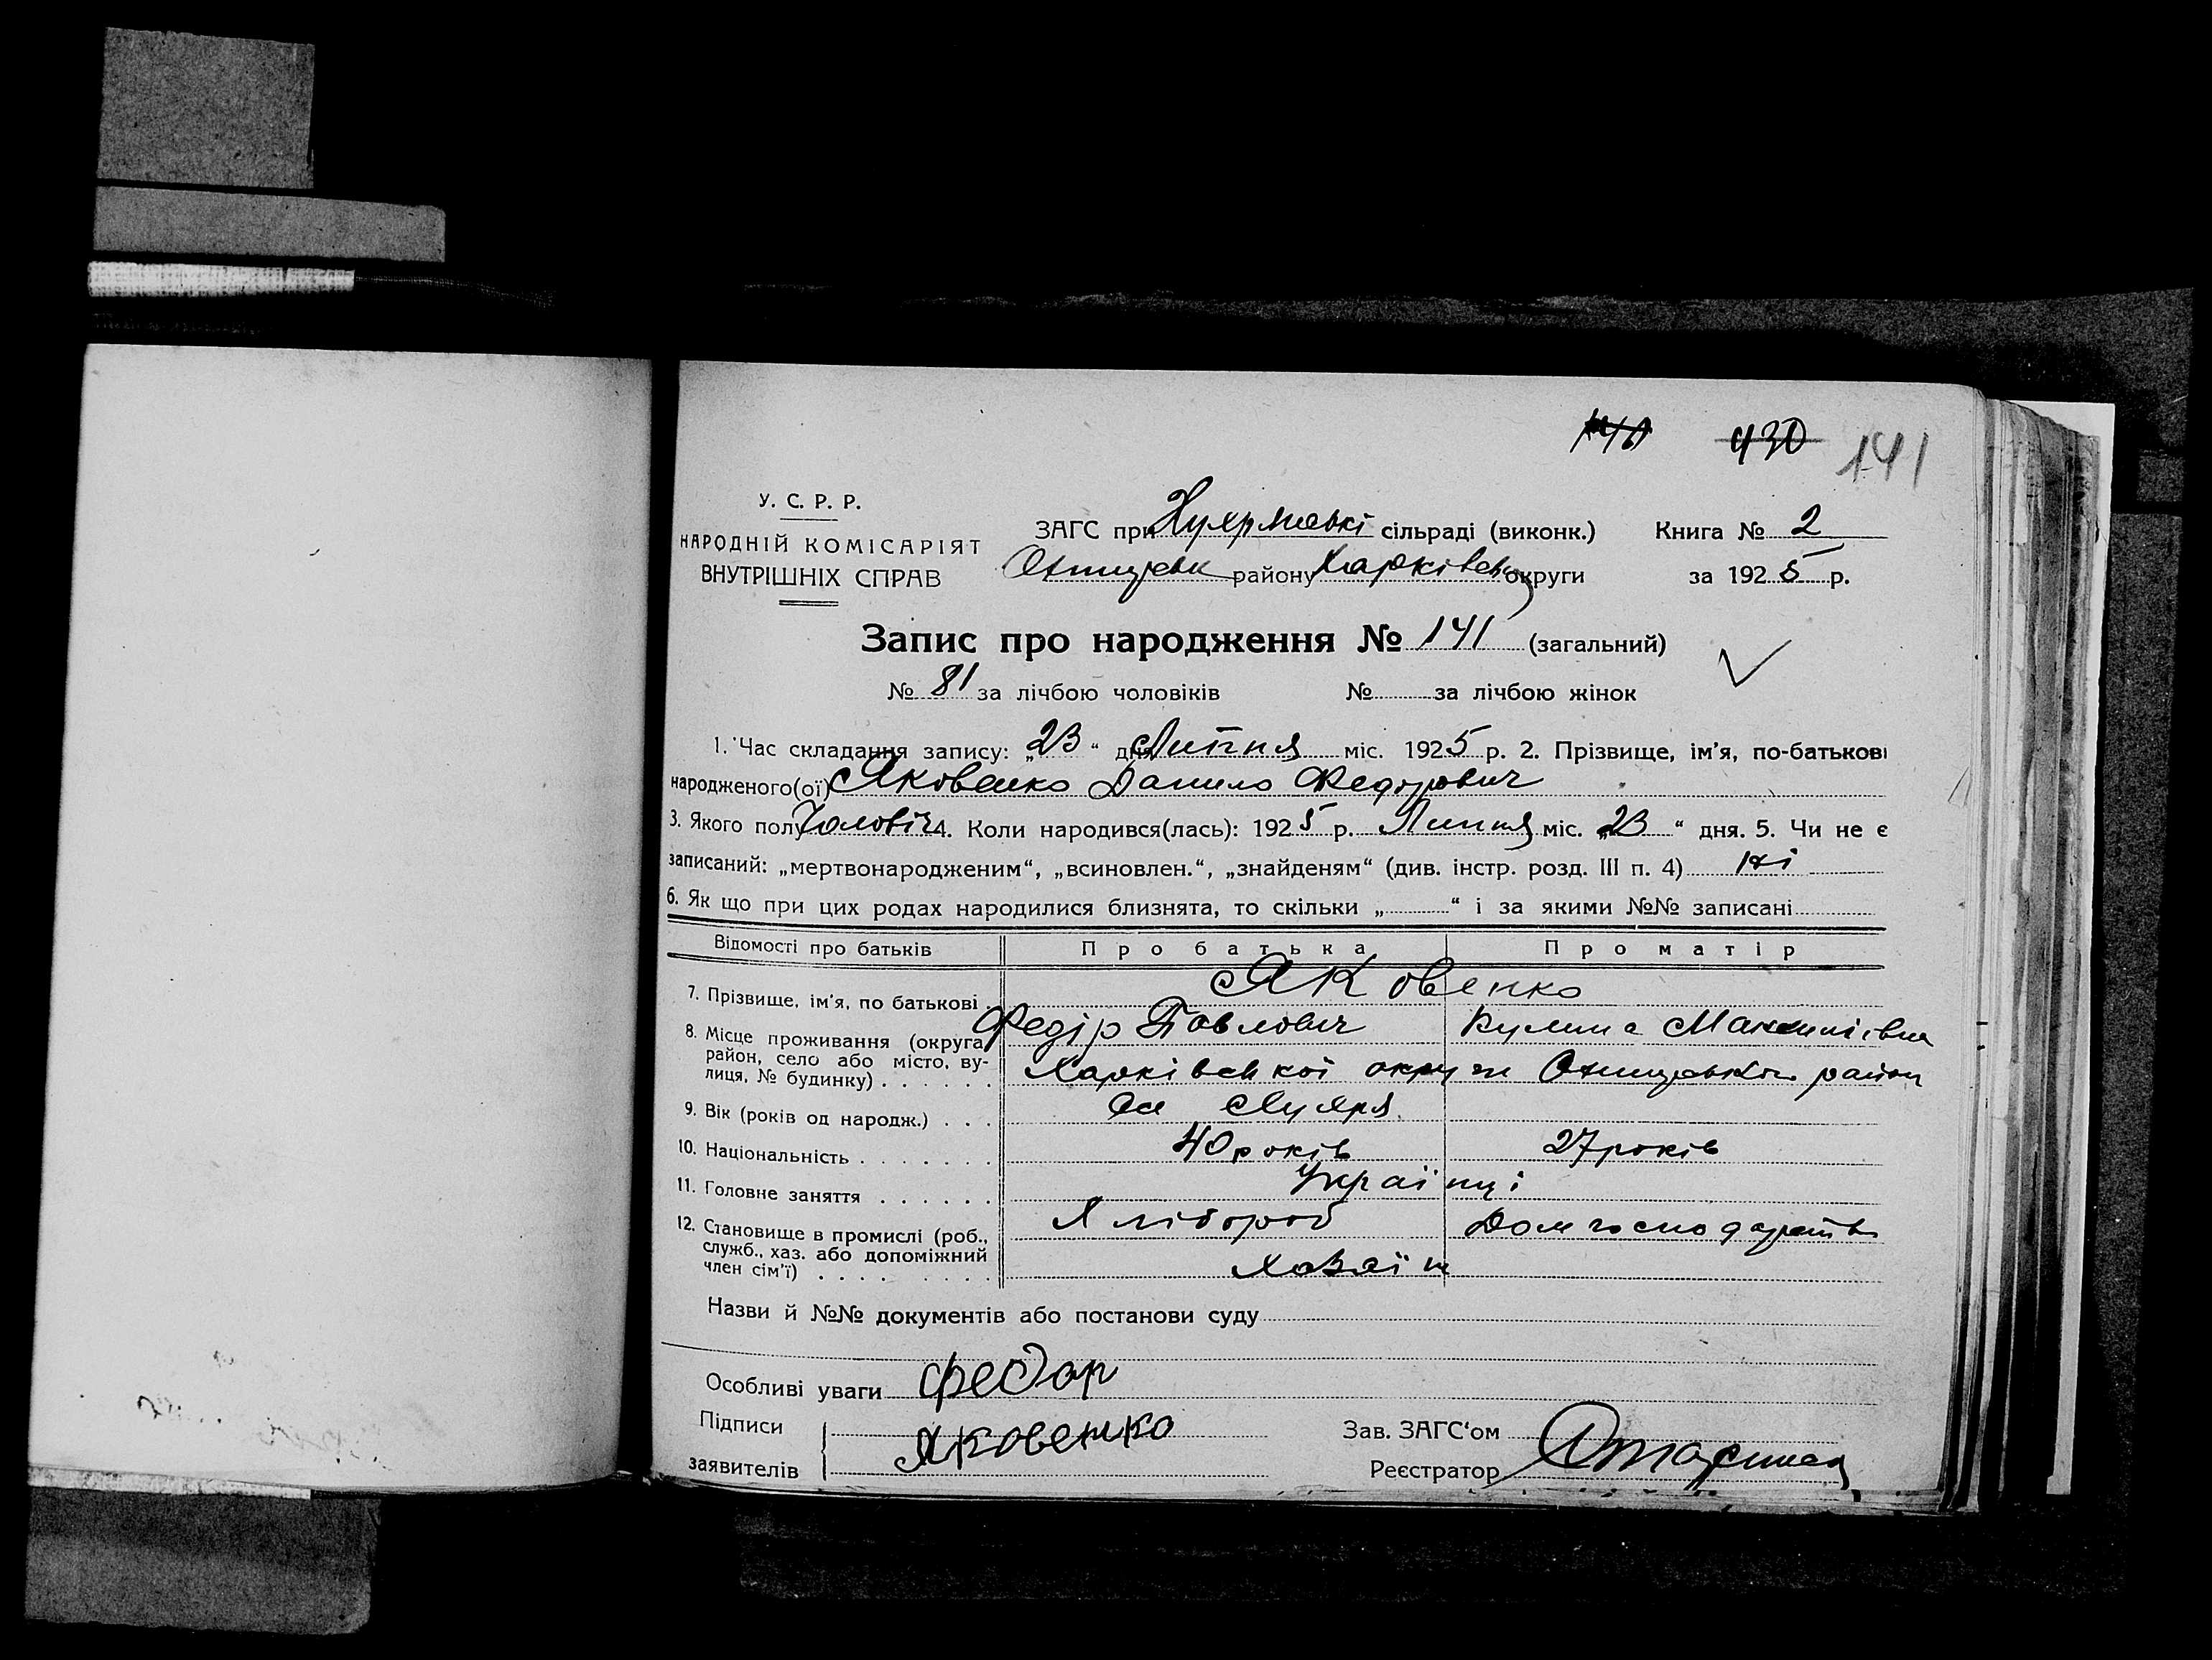 430 141
У. С. Р. Р.
НАРОДНІЙ КОМІСАРІЯТ
ВНУТРІШНІХ СПРАВ
ЗАГС при сільраді (виконк.) Книга № 2
району Харківськ округи за 1925 р.
Запис про народження № 141 (загальний)
№ 81 за лічбою чоловіків № за лічбою жінок
1. Час складання запису: „23“ дня Липня міс. 1925 р. 2. Прізвище, ім’я, по-батькові
народженого(ої) Яковенко Данило Федорович
3. Якого полу Чоловіч 4. Коли народився(лась): 1925 р. Липня міс. „23“ дня. 5. Чи не є
записаний: „мертвонародженим“, „всиновлен.“, „знайденям“ (див. інстр. розд. III п. 4) ні
6. Як що при цих родах народилися близнята, то скільки „ “ і за якими №№ записані
Відомості про батьків Про батька Про матір
7. Прізвище, ім’я, по батькові . Яковенко
Федір Павлович
8. Місце проживання (округа, район, село або місто, вулиця, № будинку) . . . . . . Харківської округи району
9. Вік (років од народж.) . . .
10. Національність . . . . . . . 40 років 27 років
11. Головне заняття . . . . . . Українці
12. Становище в промислі (роб., служб., хаз. або допоміжний член сім’ї) . . . . . . . . . Хлібороб
Хазяїн
Назви й №№ документів або постанови суду
Особливі уваги Федор
Підписи заявителів Яковенко
Зав. ЗАГС‘ом
Реєстратор